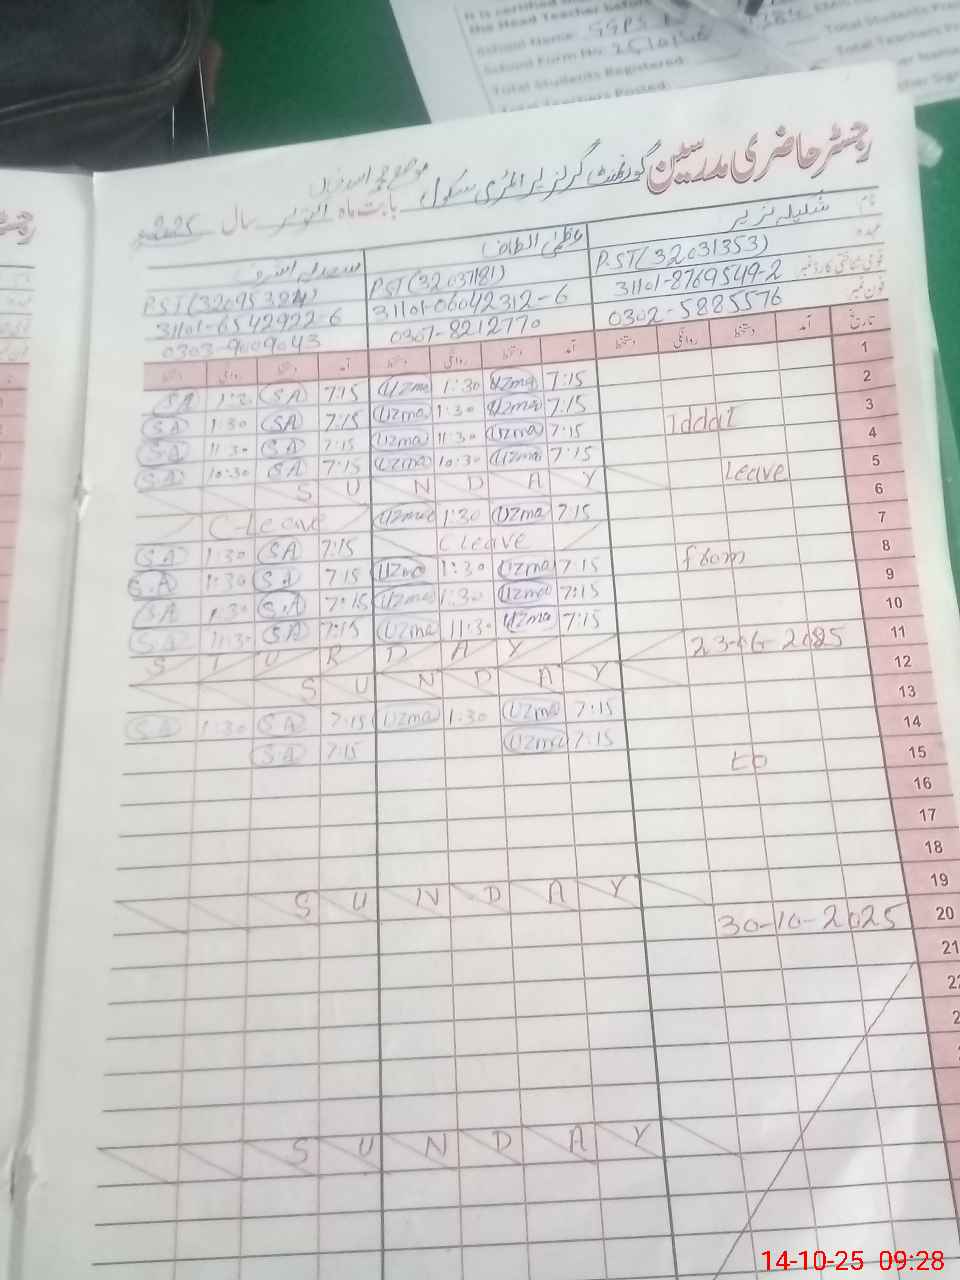 It is certified that
the Head Teacher before
School Name: GGPS
School Form No.
Total Students Registered:
Total Students
Total Teachers Posted:
Total Teachers
رجسٹر حاضری مدرسین گورنمنٹ گرلز پرائمری سکول
بابت ماہ اکتوبر سال 2025
نام
عہدہ
قومی شناختی کارڈ نمبر
فون نمبر
شکیلہ نزیر
PST(32031353)
31101-8769549-2
0302-5885576
عظمیٰ الطاف
PST(32037181)
31101-06042312-6
0307-8212770
سعدیہ اشرف
PST(32095384)
31101-6542922-6
0303-9009043
تاریخ آمد دستخط روانگی دستخط آمد دستخط روانگی دستخط آمد دستخط روانگی دستخط
1 7:15 Uzma 1:30 Uzma 7:15 SA SA
2 7:15 Uzma 1:30 Uzma 7:15 SA 1:30 SA
3 Iddat 7:15 Uzma 11:30 Uzma 7:15 SA 11:30 SA
4 7:15 Uzma 10:30 Uzma 7:15 SA 10:30 SA
5 Leave S U N D A Y
6 7:15 Uzma 1:30 Uzma C-Leave
7 C leave 7:15 SA 1:30 SA
8 from 7:15 Uzma 1:30 Uzma 7:15 SA 1:30 S.A
9 7:15 Uzma 1:30 Uzma 7:15 S.A 1:30 SA
10 7:15 Uzma 11:30 Uzma 7:15 SA 11:30 S.A
11 23-06-2025 S T U R D A Y
12 S U N D A Y
13 7:15 Uzma 1:30 Uzma 7:15 SA 1:30 SA
14 7:15 Uzma 7:15 SA
15 to
16
17
18
19 S U N D A Y
20 30-10-2025
21
S U N D A Y
14-10-25 09:28